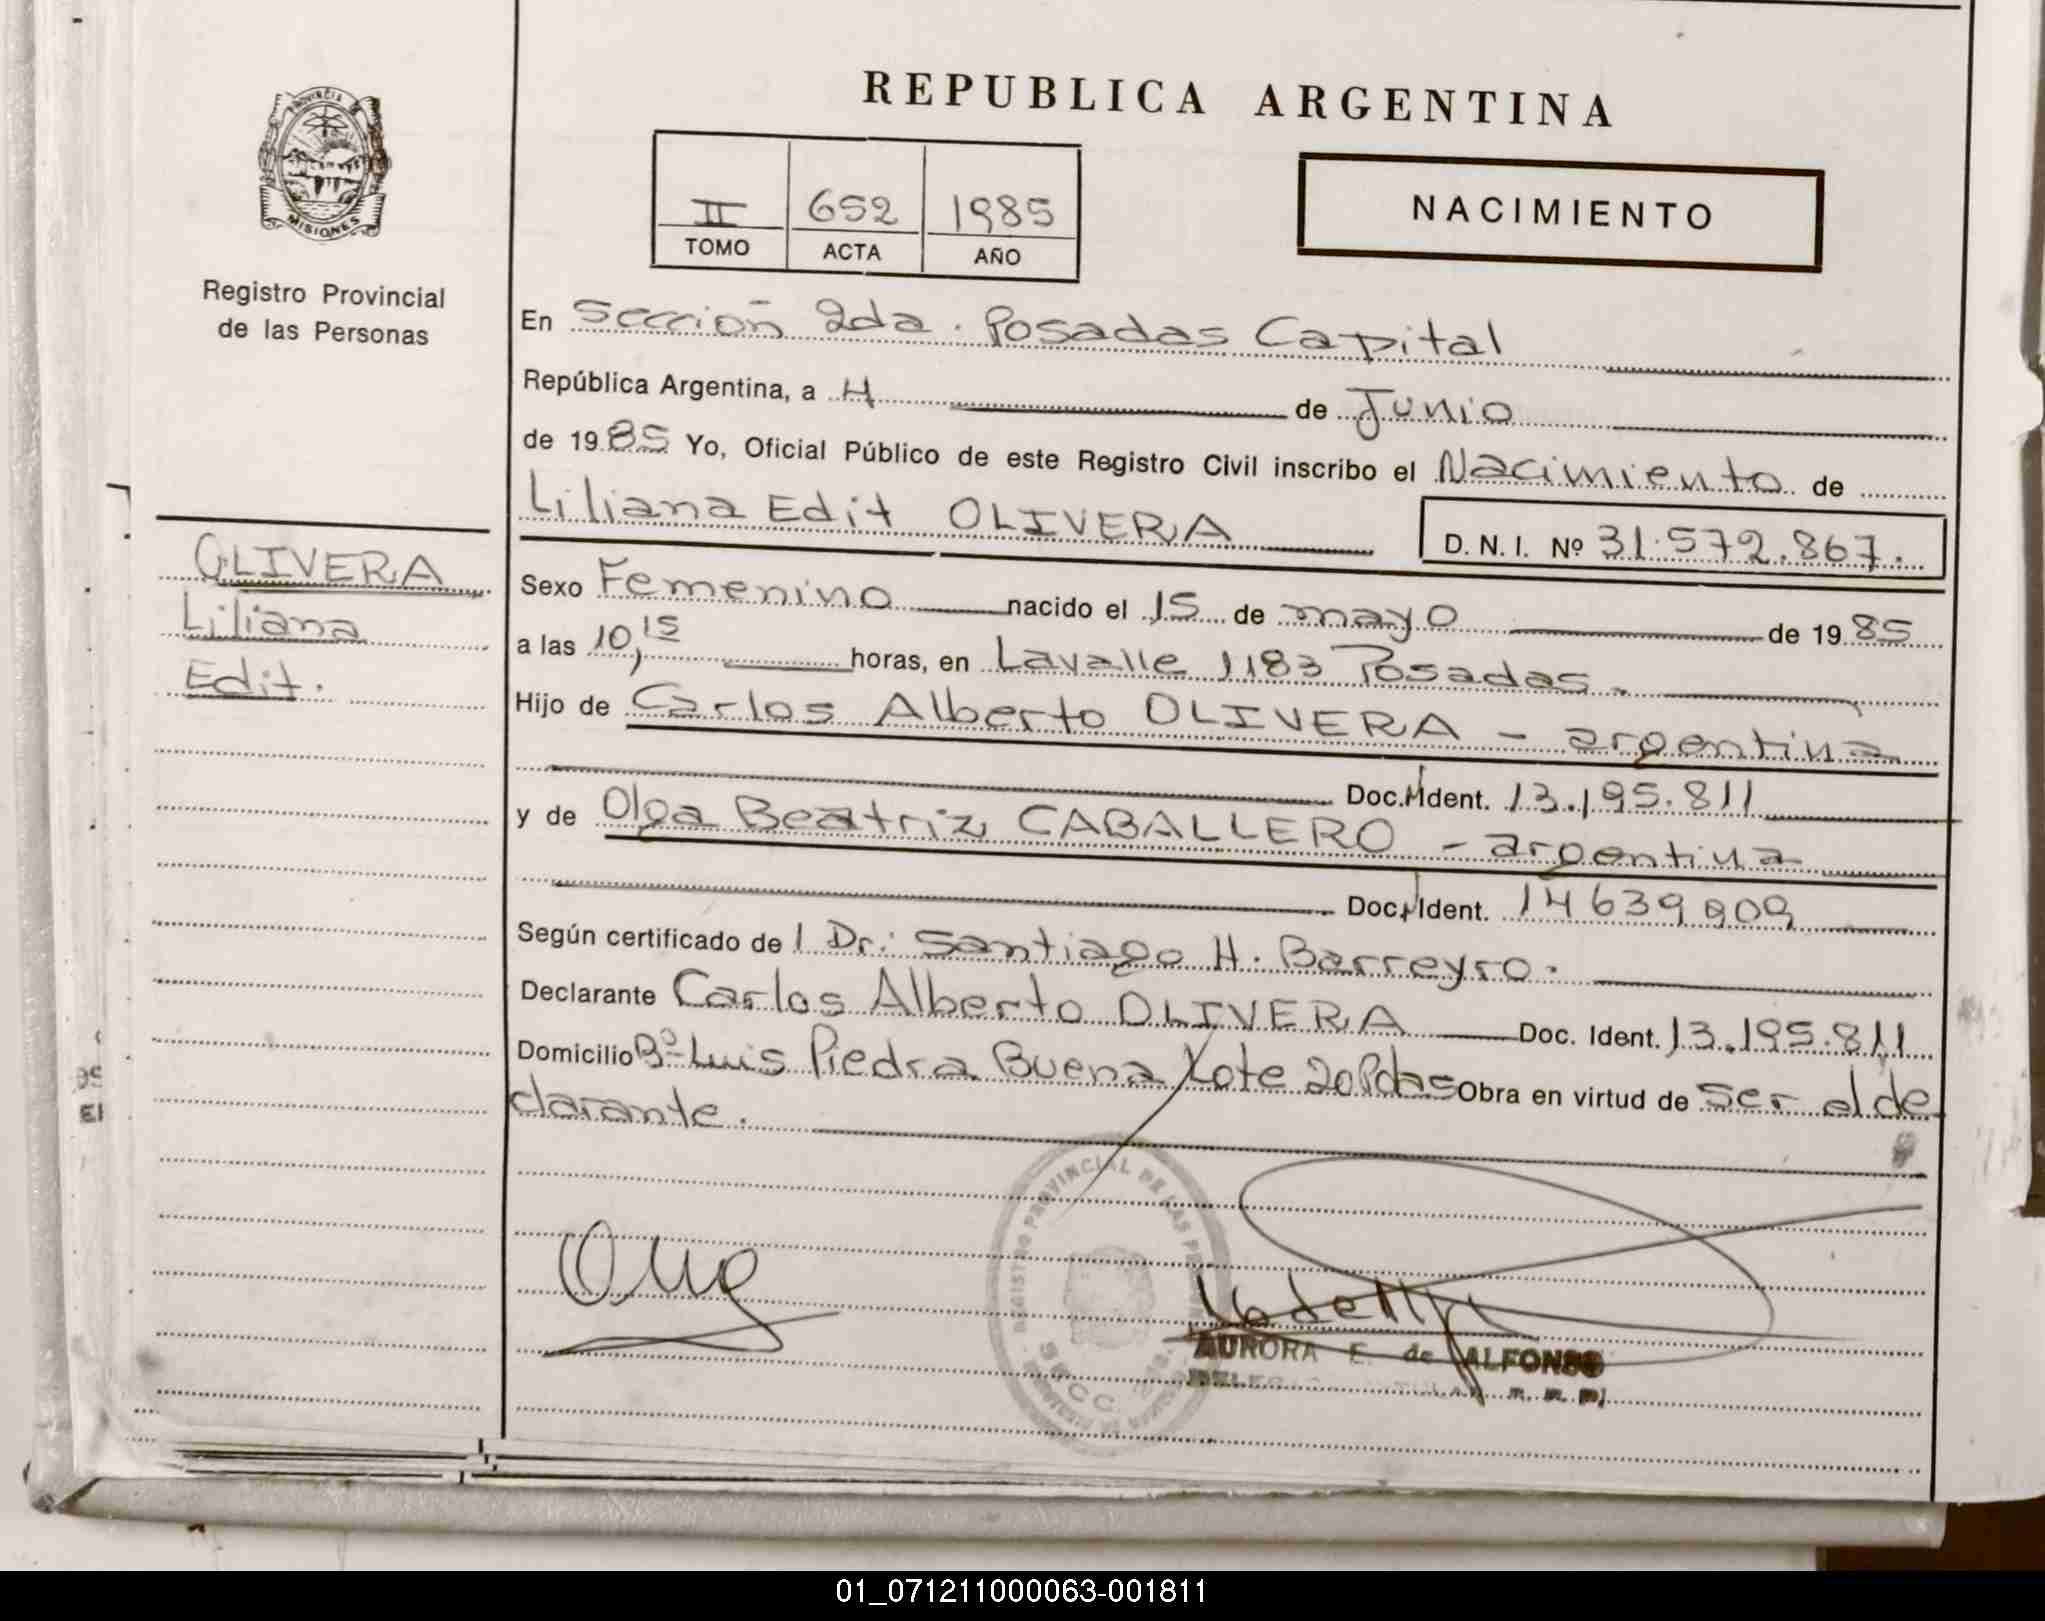 REPUBLICA ARGENTINA
PROVINCIA DE
MISIONES
Registro Provincial
de las Personas
II 652 1985
TOMO ACTA AÑO
NACIMIENTO
En Sección 2da. Posadas Capital
República Argentina, a 4 de Junio
de 1985 Yo, Oficial Público de este Registro Civil inscribo el Nacimiento de
Liliana Edit OLIVERA
D. N. I. Nº 31.572.867.
OLIVERA
Liliana
Edit.
Sexo Femenino nacido el 15 de mayo de 1985
a las 10,15 horas, en Lavalle 1183 Posadas.
Hijo de Carlos Alberto OLIVERA - argentina
Doc. Ident. 13.195.811
y de Olga Beatriz CABALLERO - argentina
Doc. Ident. 14639909
Según certificado de l Dr: Santiago H. Barreyro.
Declarante Carlos Alberto OLIVERA Doc. Ident. 13.195.811
Domicilio Bº Luis Piedra Buena Lote 20 Pdas Obra en virtud de ser el de
clarante.
REGISTRO PROVINCIAL DE LAS
SECC. 2da.
AURORA E. de ALFONSO
01_071211000063-001811